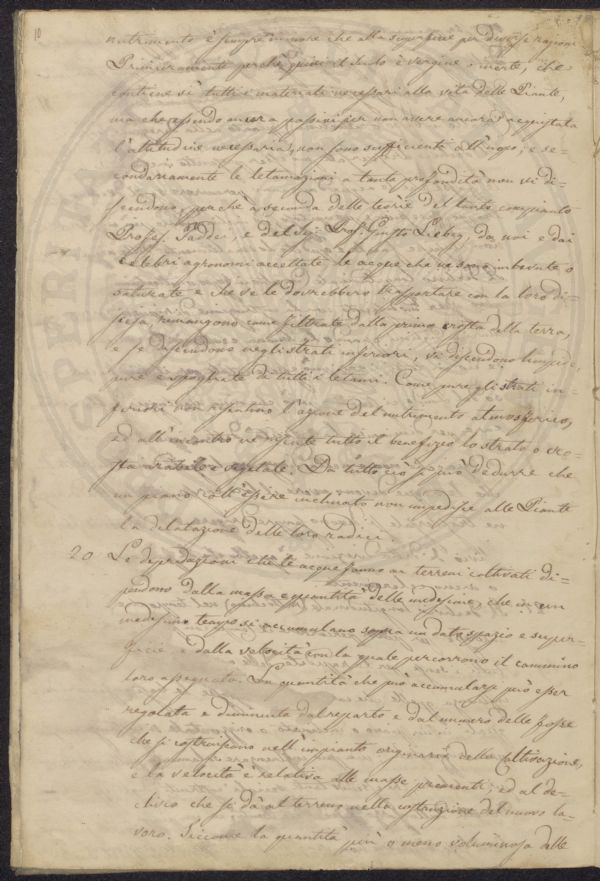 10
nutrimento è sempre minore che alla superficie per diverse ragioni
Primieramente perchè quivi il suolo è vergine inerte, che
contiene sì tutti i materiali necessari alla vita delle Piante,
ma che essendo ancora passivi per non avere ancora acquistata
l'attitudine necessaria, non sono sufficienti all'uopo; e se-
condariamente le letamazioni a tanta profondità non vi di-
scendono, perchè a seconda delle teorie del tanto compianto
Profess. Taddei, e del Sig. Prof. Liebig, da noi e dai
celebri agronomi accettate le acque che ne sono imbevute o
saturate e che ve le dovrebbero trasportare con la loro di-
scesa, rimangono come filtrate dalla prima crosta della terra,
e se discendono negli strati inferiori, vi discendono limpide,
pure e spogliate di tutti i letami. Come pure gli strati in-
feriori non risentono l'azione del nutrimento atmosferico,
ed all'incontro ne risente tutto il benefizio lo strato o cro-
sta arabile e vegetale. Da tutto ciò si può dedurre che
un piano coll'essere inclinato non impedisce alle Piante
la dilatazione delle loro radici.
20 Le depredazioni che le acque fanno ai terreni coltivati di-
pendono dalla massa e quantità delle medesime, che in un
medesimo tempo si accumulano sopra un dato spazio e super-
ficie, e dalla velocità con la quale percorrono il cammino
loro assegnato. La quantità che può accumularsi può esser
regolata e diminuita dal reparto e dal numero delle fosse
che si costruiscono nell'impianto originario della coltivazione,
e la velocità è relativa alle masse prementi, ed al de-
clivio che si dà al terreno nella costruzione del nuovo la-
voro. Siccome la quantità più o meno voluminosa delle